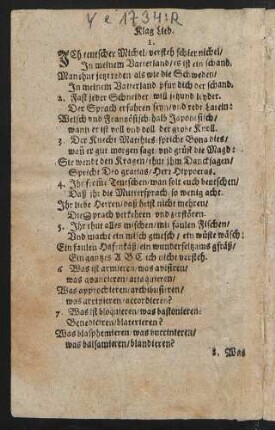 Y e 1734:R
Klag Lied.
1.
ICh teutscher Michel/versteh schier nichel/
In meinem Vatterland/es ist ein schand.
Man thut jetzt reden als wie die Schweden/
In meinem Vatterland pfui dich der schand.
2. Fast jeder Schneider will jetzund leyder
Der Sprach erfahren seyn/und redt Latein:
Welsch und Frantzösisch halb Japonesisch/
wann er ist voll und doll der grobe Knoll.
3. Der Knecht Matthies spricht Bona dies/
wañ er gut morgen sagt und grüst die Magd:
Sie wendt den Kragen/thut ihm Dancksagen/
Spricht Deo gratias/Herr Hippocras.
4. Ihr fromme Teutschen/man solt euch beutschen/
Daß ihr die Mutterspraach so wenig acht.
Ihr liebe Herren/das heist nicht mehren/
Die Sprach verkehren und zerstören.
5. Ihr thut alles mischen/mit faulen Fischen/
Und macht ein misch gmesch/ein wüste wäsch:
Ein faulen Hafenkäß/ein wunderseltzams gfräß/
Ein gantzes A B C ich nicht versteh.
6 Was ist armieren/was avisiren/
was avanciren/attaquiren/
Was approchieren/archibusieren/
was arrivieren/accordieren?
7. Was ist bloquieren/was bastonieren:
Benedicieren/blaterieren?
Was blasphemieren/was buccinieren/
was balsamieren/blandieren?
8. Was